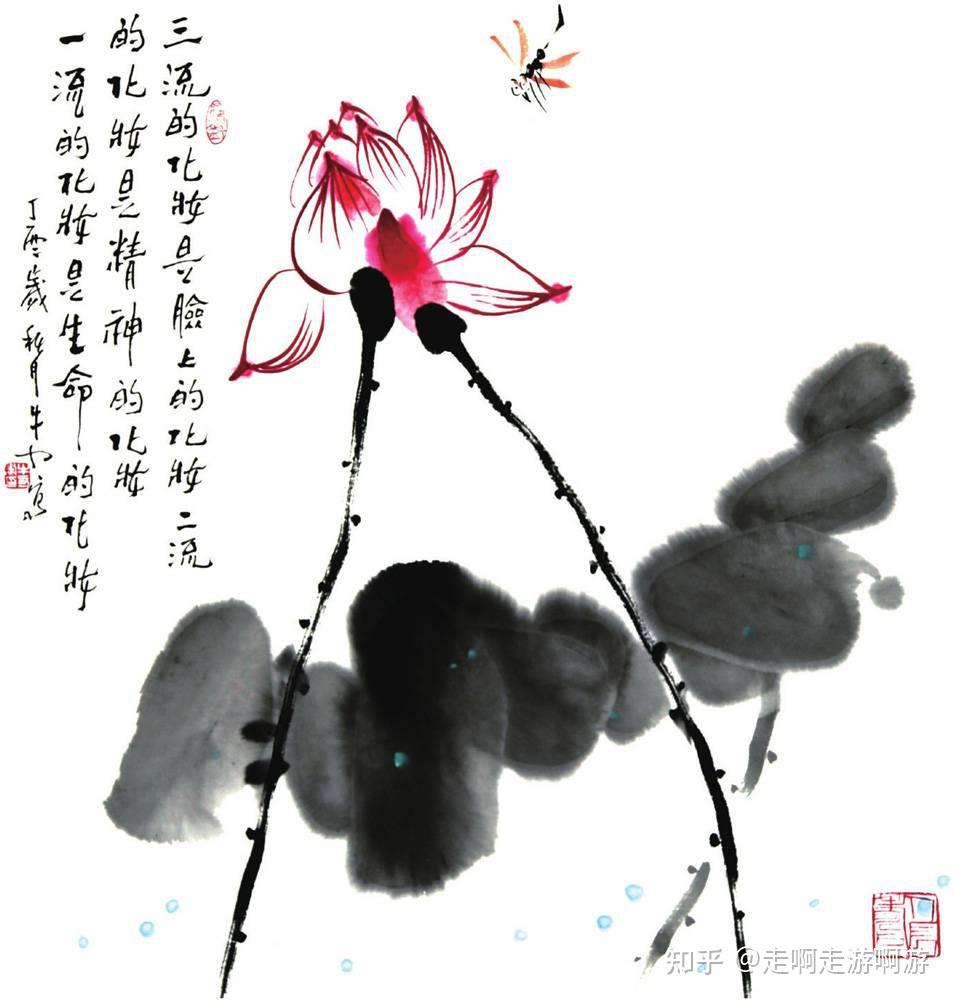 三流的化妝是臉上的化妝二流
的化妝是精神的化妝
一流的化妝是生命的化妝
丁酉歲秋月牛寫
知乎 @走啊走游啊游